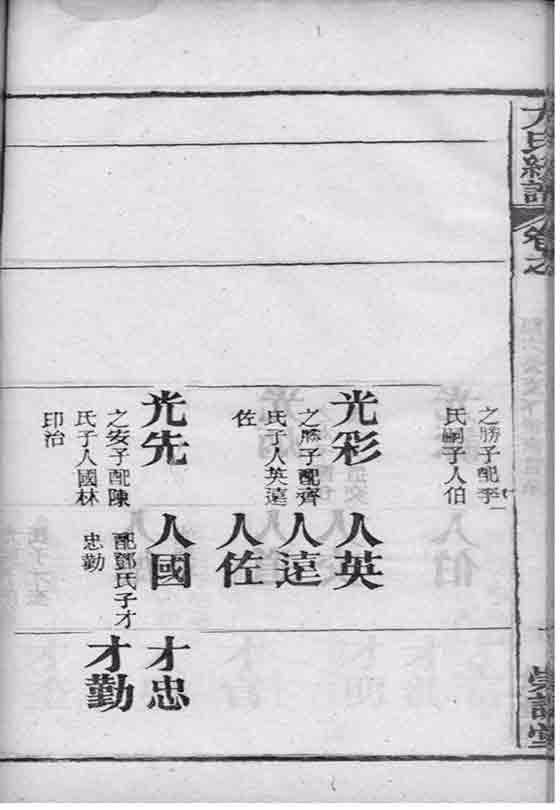 氏 譜 卷之
堂
之勝子配李
氏嗣子人伯
光彩
之勝子配齊
氏子人英遠
佐
光先
之安子配陳
氏子人國林
印治
人英
人遠
人佐
人國
配鄧氏子才
忠勤
才忠
才勤